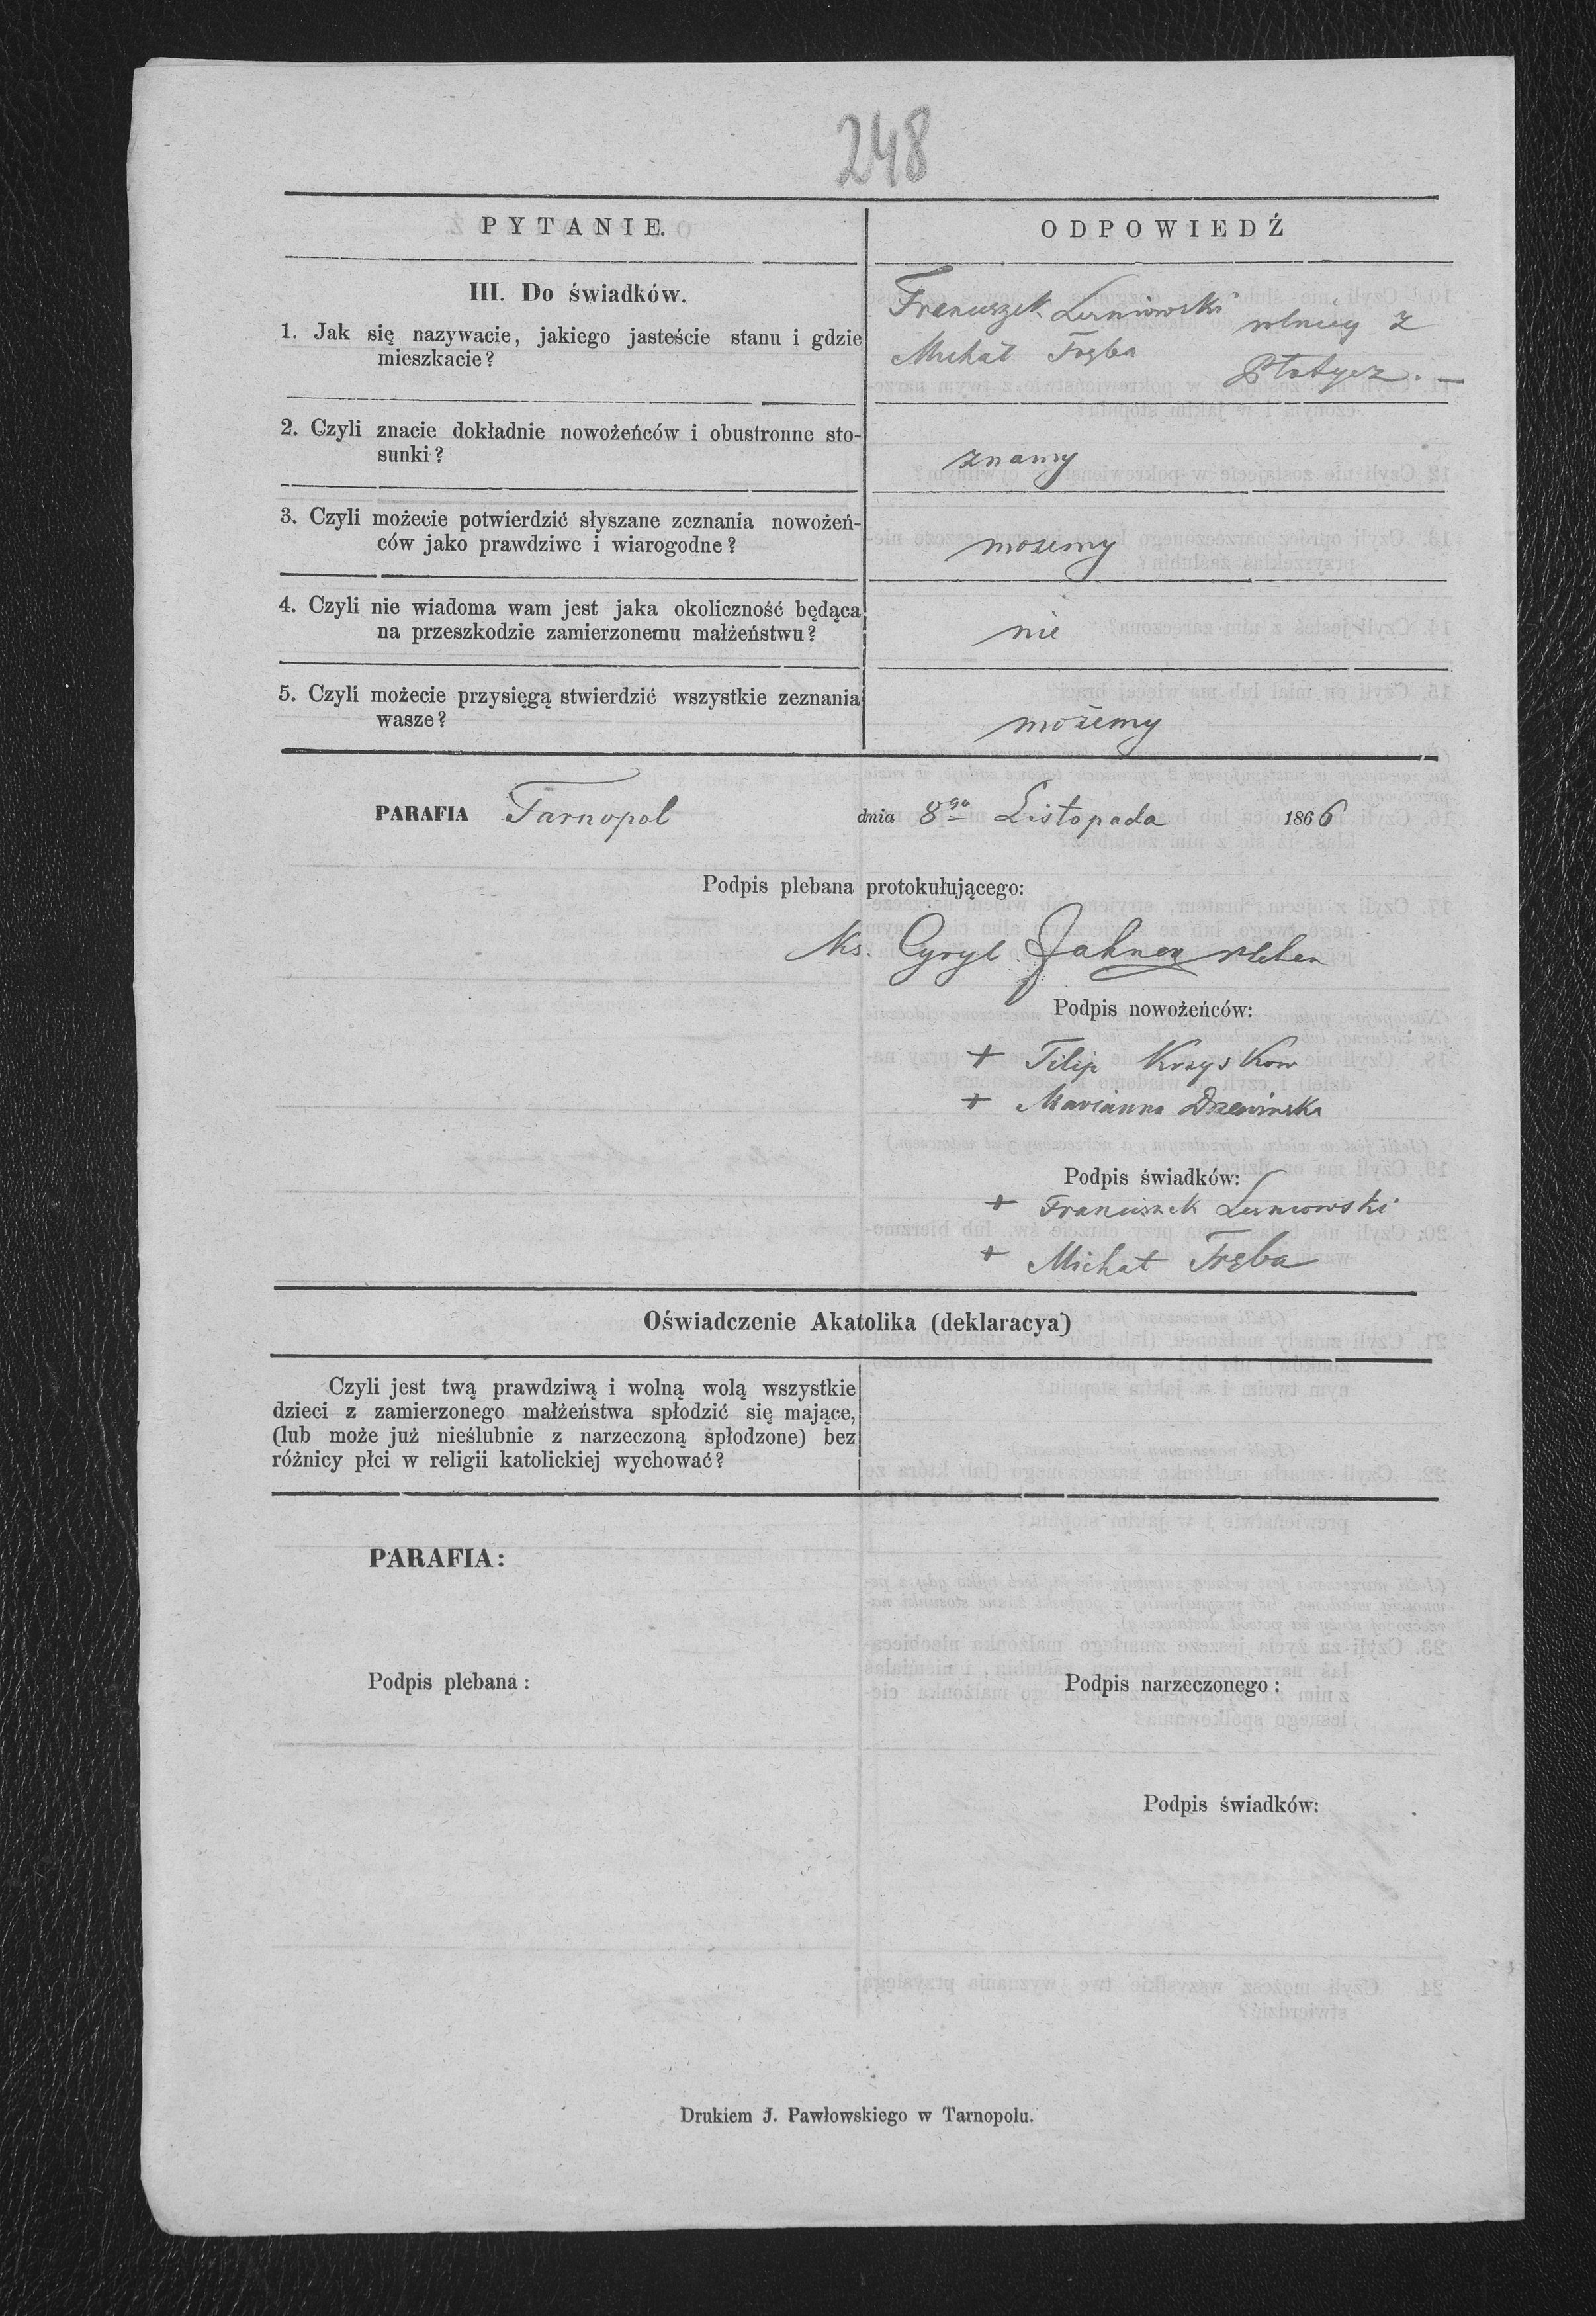 248
PYTANIE.
ODPOWIEDŹ
III. Do świadków.
1. Jak się nazywacie, jakiego jasteście stanu i gdzie
mieszkacie?
Franciszek
Michał Tręba
rolnicy z
Płotycz. —
2. Czyli znacie dokładnie nowożeńców i obustronne sto-
sunki?
znamy
3. Czyli możecie potwierdzić słyszane zeznania nowożeń-
ców jako prawdziwe i wiarogodne?
możemy
4. Czyli nie wiadoma wam jest jaka okoliczność będąca
na przeszkodzie zamierzonemu małżeństwu?
nie
5. Czyli możecie przysięgą stwierdzić wszystkie zeznania
wasze?
możemy
PARAFIA Tarnopol dnia 8go Listopada 1866
Podpis plebana protokułującego:
Ks. Cyryl Jahner pleban
Podpis nowożeńców:
+ Filip Krzyskow
+ Marianna
Podpis świadków:
+ Franciszek
+ Michał Tręba
Oświadczenie Akatolika (deklaracya)
Czyli jest twą prawdziwą i wolną wolą wszystkie
dzieci z zamierzonego małżeństwa spłodzić się mające,
(lub może już nieślubnie z narzeczoną spłodzone) bez
różnicy płci w religii katolickiej wychować?
PARAFIA:
Podpis plebana:
Podpis narzeczonego:
Podpis świadków:
Drukiem J. Pawłowskiego w Tarnopolu.